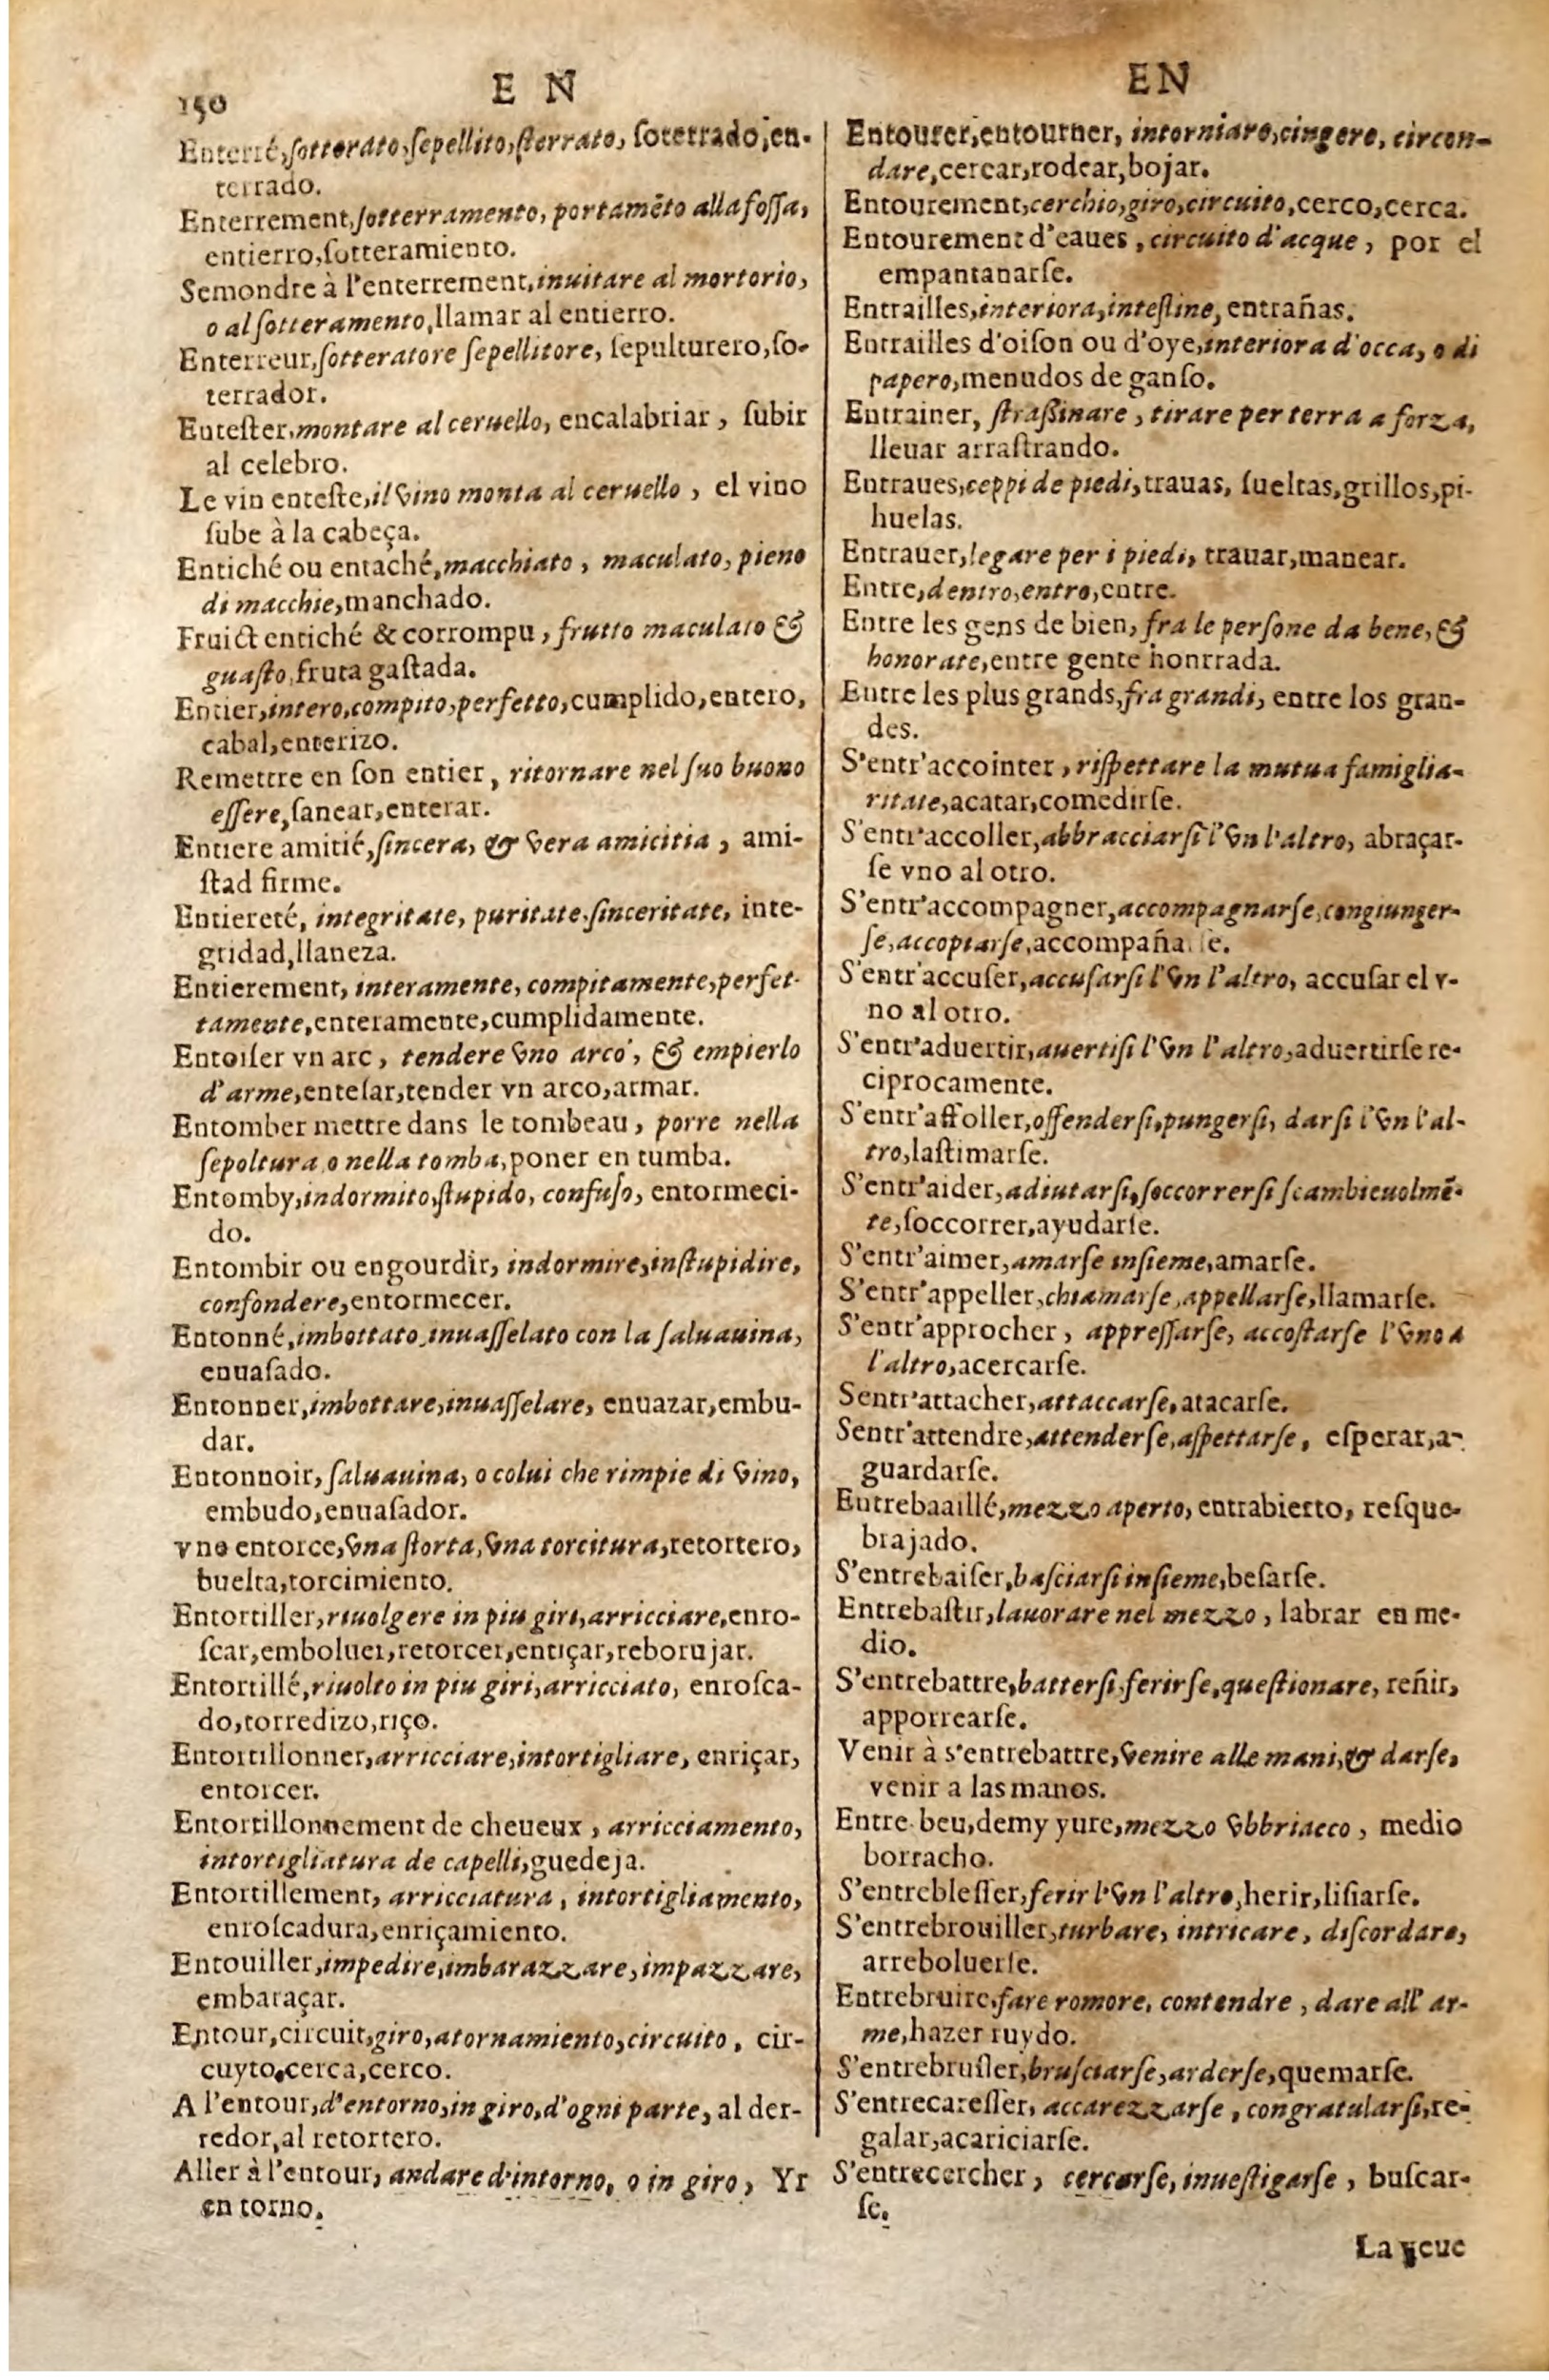 150
E N
Enterré, ſotterato, ſepellito, ſterrato, ſoterrado, en-
terrado.
Enterrement, ſotterramento, portamẽto alla foſſa,
entierro, ſotteramiento.
Semondre à l'enterrement, inuitare al mortorio,
o al ſotteramento, llamar al entierro.
Enterreur, ſotteratore ſepellitore, ſepulturero, ſo-
terrador.
Enteſter, montare al ceruello, encalabriar, ſubir
al celebro.
Le vin enteſte, il vino monta al ceruello, el vino
ſube à la cabeça.
Entiché ou entaché, macchiato, maculato, pieno
di macchie, manchado.
Fruict entiché & corrompu, frutto maculato &
guaſto, fruta gaſtada.
Entier, intero, compito, perfetto, cumplido, entero,
cabal, enterizo.
Remettre en ſon entier, ritornare nel ſuo buono
eſſere, ſanear, enterar.
Entiere amitié, ſincera, & vera amicitia, ami-
ſtad firme.
Entiereté, integritate, puritate, ſinceritate, inte-
gridad, llaneza.
Entierement, interamente, compitamente, perfet-
tamente, enteramente, cumplidamente.
Entoiſer vn arc, tendere vno arco, & empierlo
d'arme, enteſar, tender vn arco, armar.
Entomber mettre dans le tombeau, porre nella
ſepoltura o nella tomba, poner en tumba.
Entomby, indormito, ſtupido, confuſo, entormeci-
do.
Entombir ou engourdir, indormire, inſtupidire,
confondere, entormecer.
Entonné, imbottato, inuaſſelato con la ſaluauina,
enuaſado.
Entonner, imbottare, inuaſſelare, enuazar, embu-
dar.
Entonnoir, ſaluauina, o colui che rimpie di vino,
embudo, enuaſador.
vne entorce, vna ſtorta, vna torcitura, retortero,
buelta, torcimiento.
Entortiller, riuolgere in piu giri, arricciare, enro-
ſcar, emboluer, retorcer, entiçar, reborujar.
Entortillé, riuolto in piu giri, arricciato, enroſca-
do, torredizo, riço.
Entortillonner, arricciare, intortigliare, enriçar,
entorcer.
Entortillonnement de cheueux, arricciamento,
intortigliatura de capelli, guedeja.
Entortillement, arricciatura, intortigliamento,
enroſcadura, enriçamiento.
Entouiller, impedire, imbarazzare, impazzare,
embaraçar.
Entour, circuit, giro, atornamiento, circuito, cir-
cuyto, cerca, cerco.
A l'entour, d'entorno, in giro, d'ogni parte, al der-
redor, al retortero.
Aller à l'entour, andare d'intorno, o in giro, Yr
en torno.
EN
Entourer, entourner, intorniare, cingere, circon-
dare, cercar, rodear, bojar.
Entourement, cerchio, giro, circuito, cerco, cerca.
Entourement d'eaues, circuito d'acque, por el
empantanarſe.
Entrailles, interiora, inteſtine, entrañas.
Entrailles d'oiſon ou d'oye, interiora d'occa, o di
papero, menudos de ganſo.
Entrainer, ſtraßinare, tirare per terra a forza,
lleuar arraſtrando.
Entraues, ceppi de piedi, trauas, ſueltas, grillos, pi-
huelas.
Entrauer, legare per i piedi, trauar, manear.
Entre, dentro, entro, entre.
Entre les gens de bien, fra le perſone da bene, &
honorate, entre gente honrrada.
Entre les plus grands, fra grandi, entre los gran-
des.
S'entr'accointer, riſpettare la mutua famiglia-
ritate, acatar, comedirſe.
S'entr'accoller, abbracciarſi l'vn l'altro, abraçar-
ſe vno al otro.
S'entr'accompagner, accompagnarſe, congiunger-
ſe, accoptarſe, accompañarſe.
S'entr'accuſer, accuſarſi l'vn l'altro, accuſar el v-
no al otro.
S'entr'aduertir, auertiſi l'vn l'altro, aduertirſe re-
ciprocamente.
S'entr'affoller, offenderſi, pungerſi, darſi l'vn l'al-
tro, laſtimarſe.
S'entr'aider, adiutarſi, ſoccorrerſi ſcambieuolmẽ-
te, ſoccorrer, ayudarſe.
S'entr'aimer, amarſe inſieme, amarſe.
S'entr'appeller, chiamarſe, appellarſe, llamarſe.
S'entr'approcher, appreſſarſe, accoſtarſe l'vno a
l'altro, acercarſe.
Sentr'attacher, attaccarſe, atacarſe.
Sentr'attendre, attenderſe, aſpettarſe, eſperar, a-
guardarſe.
Entrebaaillé, mezzo aperto, entrabierto, reſque-
brajado.
S'entrebaiſer, baſciarſi inſieme, beſarſe.
Entrebaſtir, lauorare nel mezzo, labrar en me-
dio.
S'entrebattre, batterſi, ferirſe, queſtionare, reñir,
apporrearſe.
Venir à s'entrebattre, venire alle mani, & darſe,
venir a las manos.
Entre beu, demy yure, mezzo vbbriacco, medio
borracho.
S'entrebleſſer, ferir l'vn l'altro, herir, liſiarſe.
S'entrebrouiller, turbare, intricare, diſcordare,
arreboluerſe.
Entrebruire, fare romore, contendre, dare all' ar-
me, hazer ruydo.
S'entrebruſler, bruſciarſe, arderſe, quemarſe.
S'entrecareſſer, accarezzarſe, congratularſi, re-
galar, acariciarſe.
S'entrecercher, cercarſe, inueſtigarſe, buſcar-
ſe.
La veue